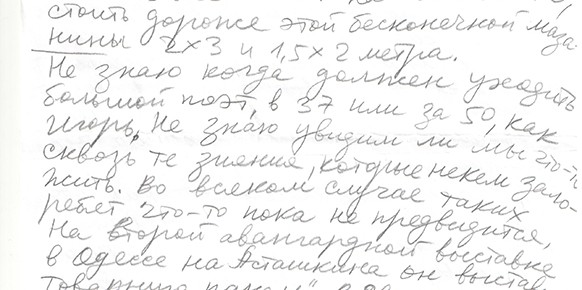 стоить дороже этой бесконечной маза-
нины 2×3 и 1,5×2 метра.
Не знаю когда должен уходить
большой поэт, в 37 или за 50, как
Игорь. Не знаю увидим ли мы что-то
сквозь те зияния, которые некем зало-
жить. Во всяком случае таких
ребят, что-то пока не предвидится,
На второй авангардной выставке
в Одессе на Асташкина он выстав